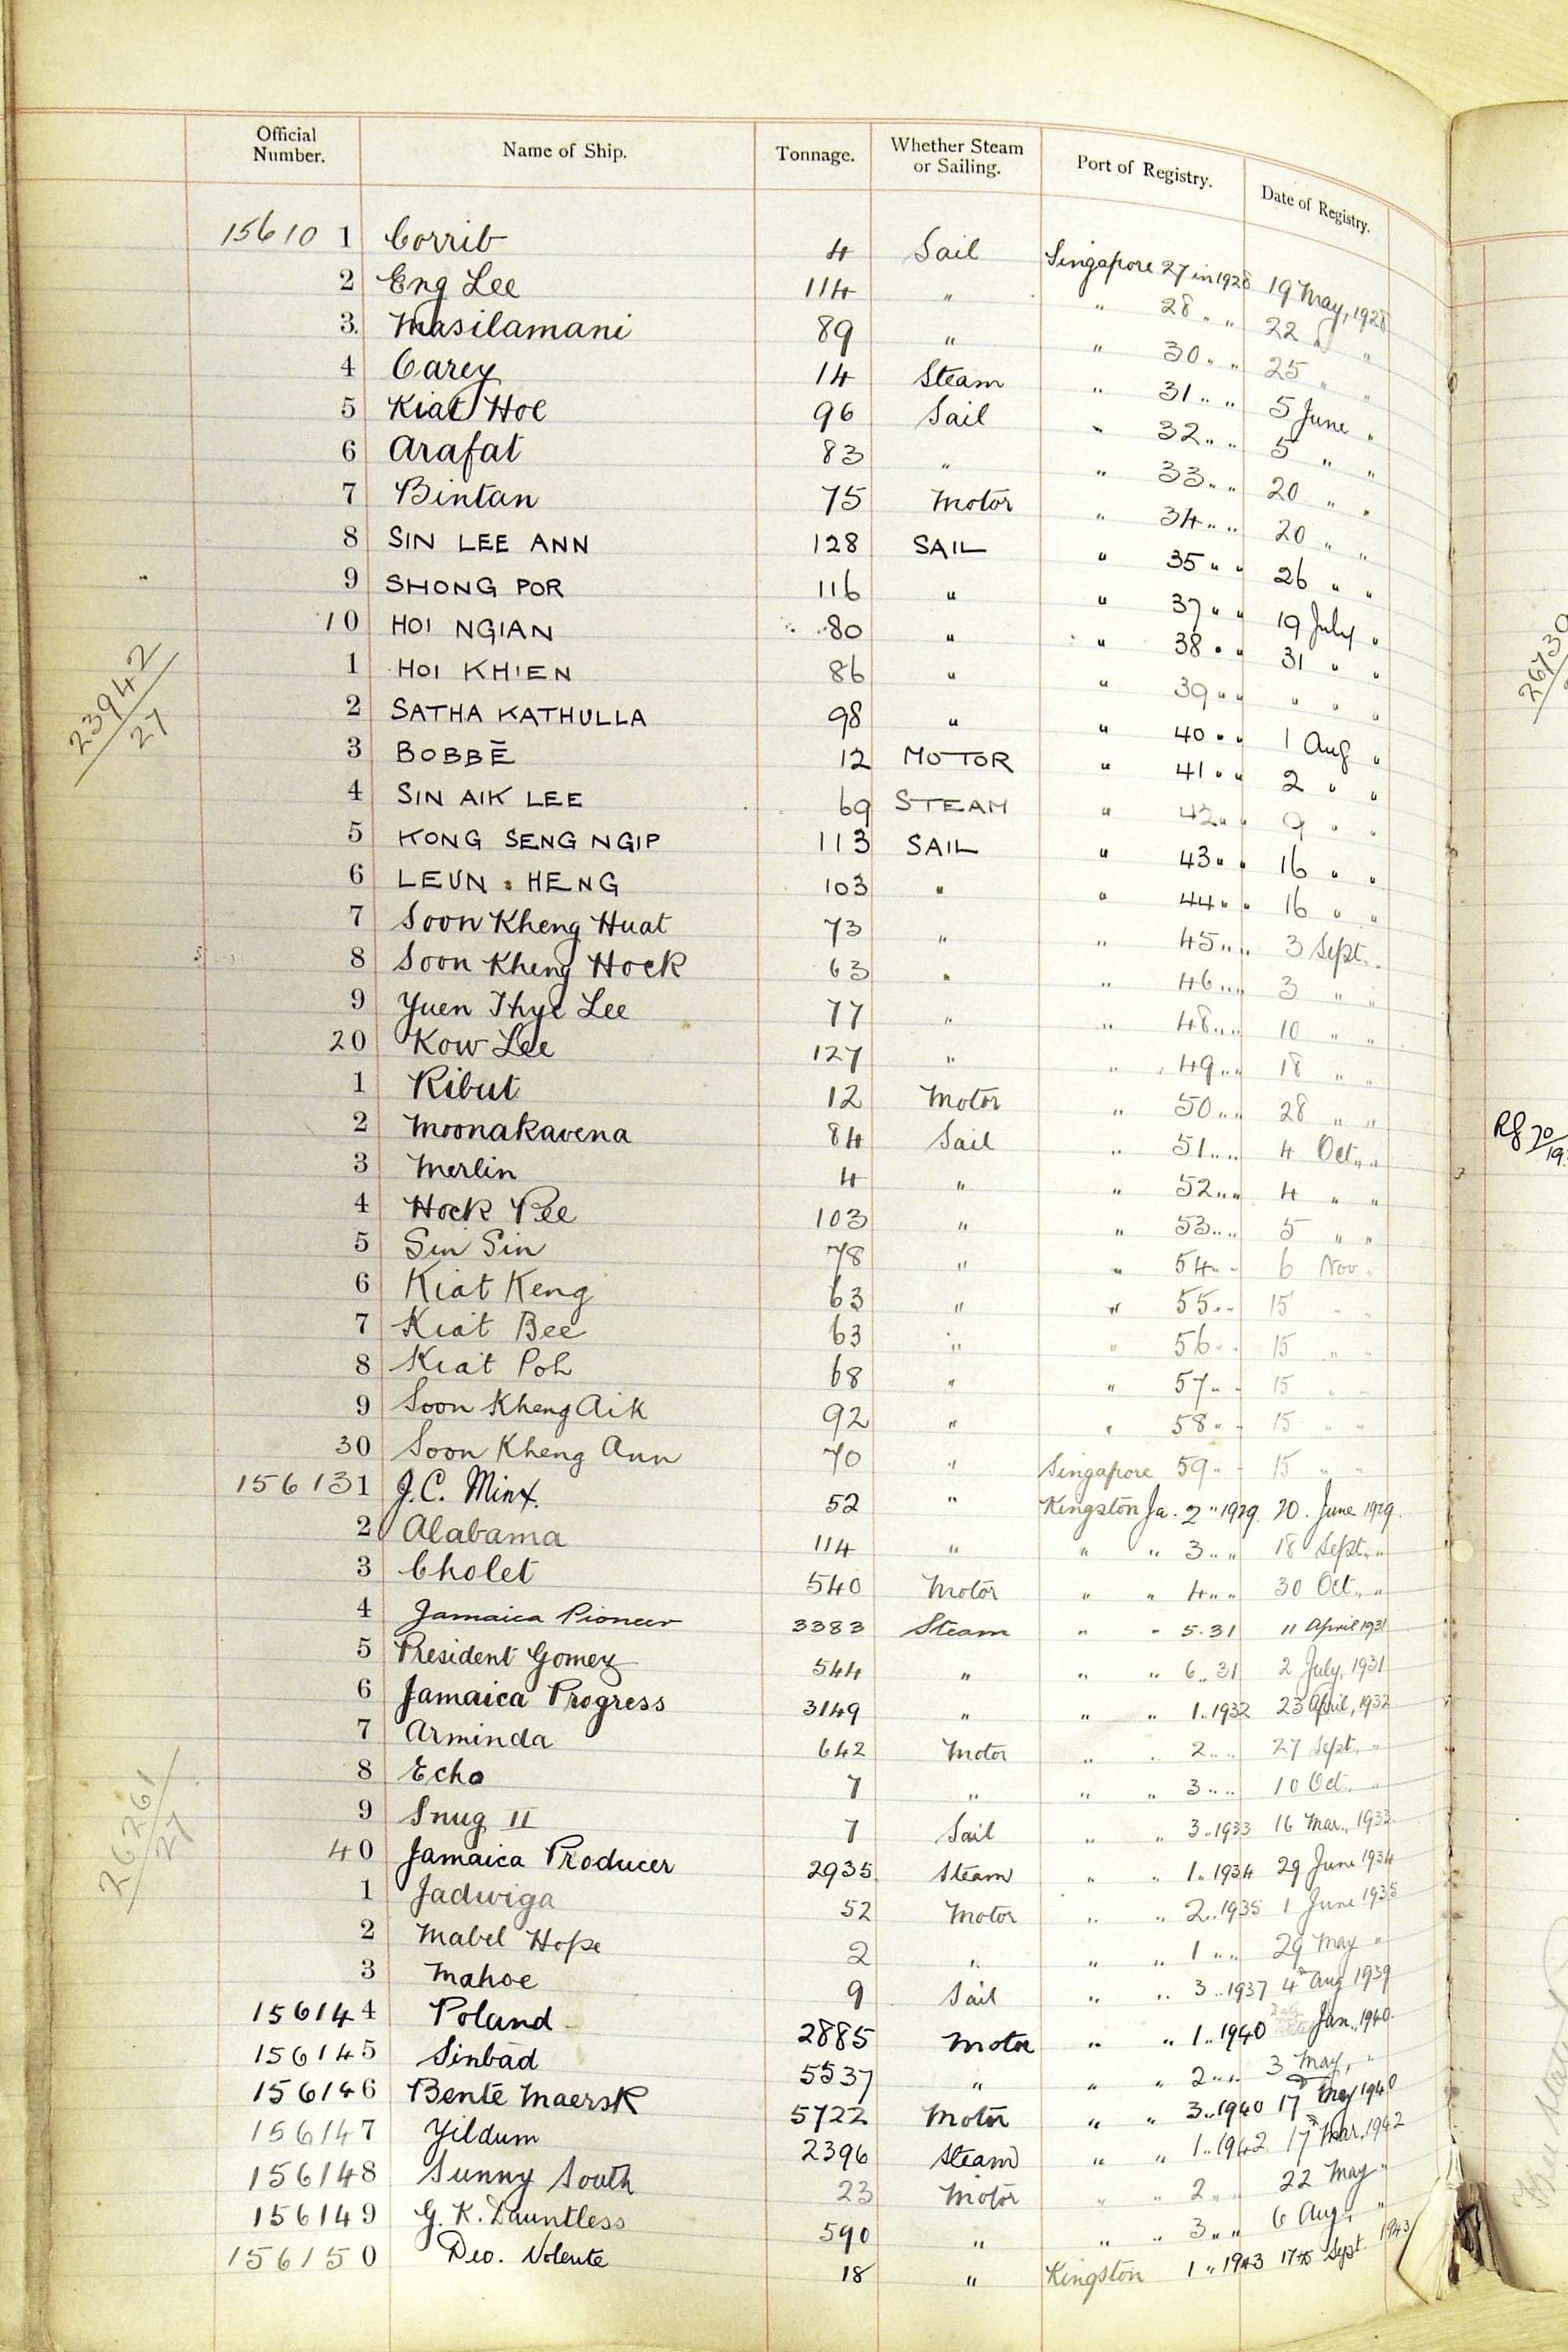 Official Number. Name of Ship. Tonnage. Whether Steam or Sailing. Port of Registry. Date of Registry.
15610 1 Corrib 4 Sail Singapore 27 in 1928 19 May, 1928
2 Eng Lee 114 " " 28 " " 22 " "
3. Masilamani 89 " " 30 " " 25 " "
4 Carey 14 Steam " 31 " " 5 June "
5 Kiat Hoe 96 Sail " 32 " " 5 " "
6 Arafat 83 " " 33 " " 20 " "
7 Bintan 75 Motor " 34 " " 20 " "
8 SIN LEE ANN 128 SAIL " 35 " " 26 " "
9 SHONG POR 116 " " 37 " " 19 July "
10 HOI NGIAN 80 " " 38 " " 31 " "
1 HOI KHIEN 86 " " 39 " " " " "
2 SATHA KATHULLA 98 " " 40 " " 1 Aug "
3 BOBBĒ 12 MOTOR " 41 " " 2 " "
4 SIN AIK LEE 69 STEAM " 42 " " 9 " "
5 KONG SENG NGIP 113 SAIL " 43 " " 16 " "
6 LEUN HENG 103 " " 44 " " 16 " "
7 Soon Kheng Huat 73 " " 45 " " 3 Sept. "
8 Soon Kheng Hock 63 " " 46 " " 3 " "
9 Yuen Thye Lee 77 " " 48 " " 10 " "
20 Kow Lee 127 " " 49 " " 18 " "
1 Ribut 12 Motor " 50 " " 28 " "
2 Moonakavena 84 Sail " 51 " " 4 Oct. "
3 Merlin 4 " " 52 " " 4 " "
4 Hock Bee 103 " " 53 " " 5 " "
5 Sin Sin 78 " " 54 " " 6 Nov "
6 Kiat Keng 63 " " 55 " " 15 " "
7 Kiat Bee 63 " " 56 " " 15 " "
8 Kiat Poh 68 " " 57 " " 15 " "
9 Soon Kheng Aik 92 " " 58 " " 15 " "
30 Soon Kheng Ann 70 " Singapore 59 " " 15 " "
156131 J.C. Minx. 52 " Kingston Ja. 2 " 1929. 20. June 1929.
2 Alabama 114 " " " 3 " " 18 Sept. "
3 Cholet 540 Motor " " 4 " " 30 Oct. "
4 Jamaica Pioneer 3383 Steam " " 5.31 11 April 1931
5 President Gomez 544 " " " 6 " 31 2 July, 1931
6 Jamaica Progress 3149 " " " 1 " 1932 23 April, 1932
7 Arminda 642 Motor " " 2 " " 27 Sept. "
8 Echo 7 " " " 3 " " 10 Oct. "
9 Snug II 7 Sail " " 3 " 1933 16 Mar., 1933.
40 Jamaica Producer 2935 Steam " " 1 " 1934 29 June 1934
1 Jadwiga 52 Motor " " 2 " 1935 1 June 1935
2 Mabel Hope 2 " " " 1 " " 29 May "
3 Mahoe 9 Sail " " 3 " 1937 4th Aug 1939
156144 Poland 2885 Motor " " 1 " 1940 Jan. 1940.
156145 Sinbad 5537 " " " 2 " " 3 May, "
156146 Bente Maersk 5722 Motor " " 3 " 1940 17th May 1940
156147 Yildum 2396 Steam " " 1 " 1942 17th Mar. 1942
156148 Sunny South 23 Motor " " 2 " " 22 May "
156149 G. K. Dauntless 590 " " " 3 " " 6 Aug. "
156150 Deo. Volente 18 " Kingston 1 " 1943 17th Sept 1943
23942/27
26261/27
26730
Rg 20/19